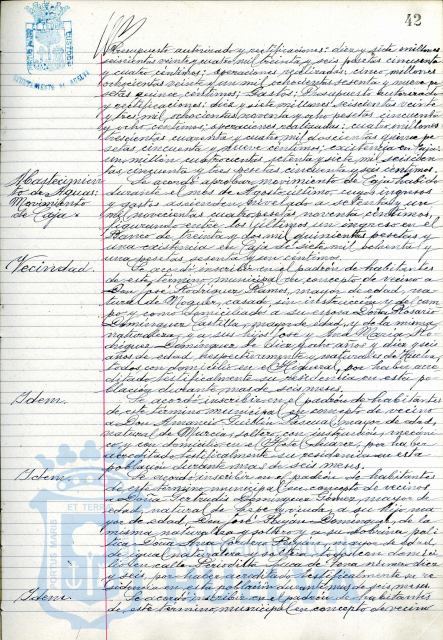 42
Presupuesto autorizado y rectificaciones: diez y siete millones
seiscientas veinte y cuatro mil treinta y seis pesetas cincuenta
y cuatro céntimos; operaciones realizadas: cinco millones
ochocientas veinte y un mil ochocientas sesenta y nueve pe-
setas quince céntimos; Gastos: Presupuesto autorizado
y rectificaciones: diez y siete millones seiscientas veinte
y tres mil ochocientas noventa y ocho pesetas cincuenta
y ocho céntimos; operaciones realizadas: cuatro millones
trescientas cuarenta y cuatro mil doscientas quince pe-
setas, cincuenta y nueve céntimos; existencia en Caja:
un millón cuatrocientas setenta y siete mil seiscien-
tas cincuenta y tres pesetas cincuenta y seis céntimos.
Abastecimien-
to de Aguas.
Movimiento
de Caja.
Se acordó aprobar movimiento de Caja habido
durante el mes de Agosto último cuyos ingresos
y gastos ascienden nivelados a setenta y un
mil novecientas cuatro pesetas noventa céntimos,
figurando entre los últimos un ingreso en el
Banco de treinta y dos mil quinientas pesetas y
una existencia en Caja de siete mil ochenta y
una pesetas sesenta y un céntimos.
Vecindad.
Se acordó inscribir en el padrón de habitantes
de este término municipal en concepto de vecino a
Don José Rodríguez mayor de edad, na-
tural de Moguer, casado, sin instrucción y del cam-
po y como domiciliado a su esposa Doña Rosario
Domínguez Castilla, mayor de edad, y de la misma
naturaleza y a sus hijos José y Ana María Ro-
dríguez Domínguez de diez y ocho años y diez y seis
años de edad respectivamente y naturales de Huelva,
todos con domicilio en el por haber acre-
ditado testificalmente su residencia en esta po-
blación durante mas de seis meses.
Idem.
Se acordó inscribir en el padrón de habitantes
de este término municipal en concepto de vecino
a Don Amancio Pascual, mayor de edad,
natural de Murcia, soltero, con instrucción, mecáni-
co y con domicilio en por haber
acreditado testificalmente su residencia en esta
población durante mas de seis meses.
Idem.
Se acordó inscribir en el padrón de habitantes
de este término municipal en concepto de vecino
a Doña Gertrudis Domínguez Gómez, mayor de
edad, natural de Lepe y viuda, a su hijo ma-
yor de edad, Don José Domínguez, de la
misma naturaleza y soltero y a su sobrina polí-
tica Doña mayor de edad,
de igual naturaleza y soltera, todos con domici-
lio en calle número diez
y seis, por haber acreditado testificalmente su re-
sidencia en esta población durante mas de seis meses.
Idem.
Se acordó inscribir en el padrón de habitantes
de este término municipal en concepto de vecino
PORTUS MARIS
ET TERRAE